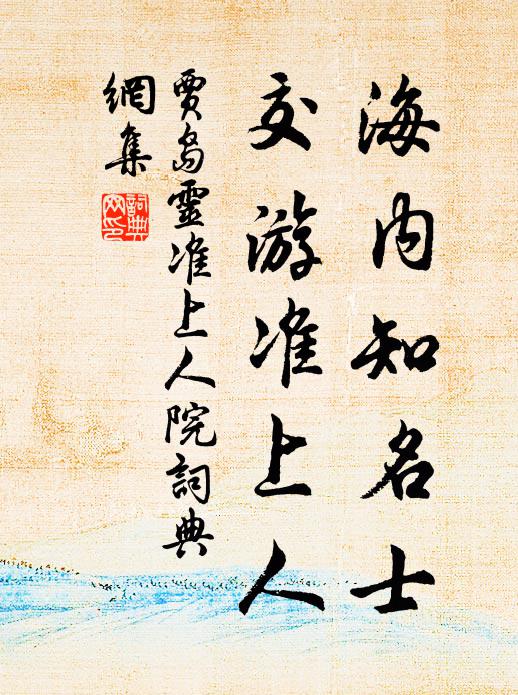 海内知名士
交游准上人
賈島靈准上人院詞典
網集
詞典
网印